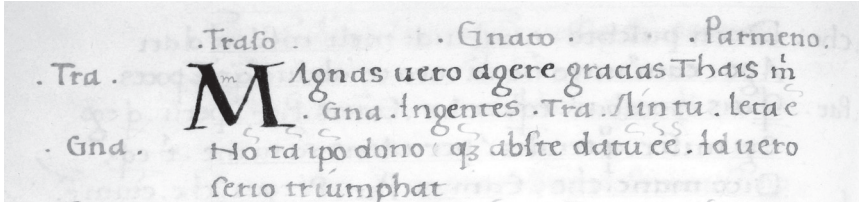 .Traso. . Gnato . . Parmeno.
. Tra . MAgnas uero agere gracias Thais m̃
. Gna . Ingentes Tra Ain tu . leta ē
. Gna . Nõ tã ipo dono qꝫ abste datũ eē . Id uero
serio triumphat